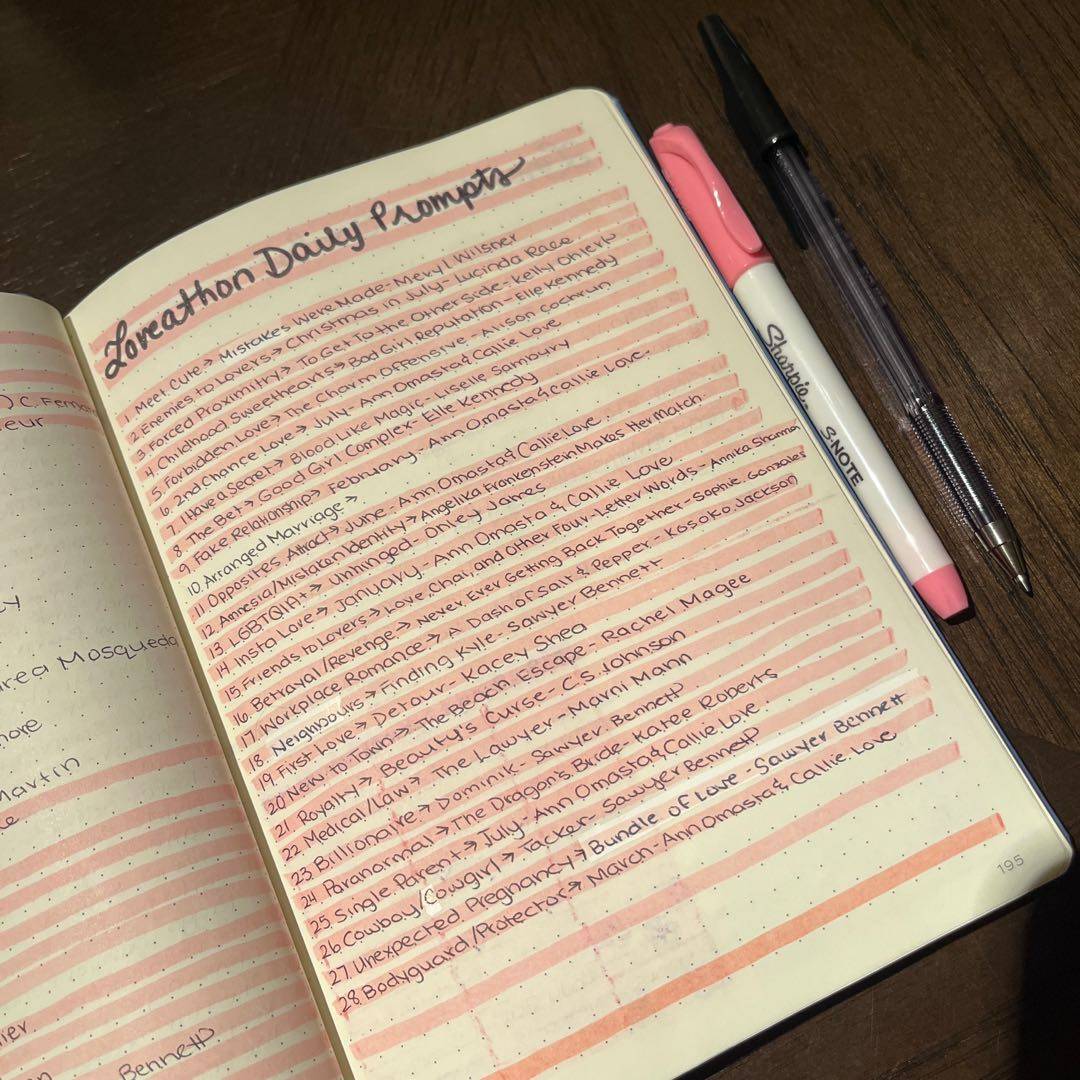 C. Fernan
eur
cy
rea Mosqueda
more
Martin
lier
Bennett
Loveathon Daily Prompts
1. Meet Cute → Mistakes Were Made - Meryl Wilsner
2. Enemies to Lovers → Christmas in July - Lucinda Race
3. Forced Proximity → To Get To the Other Side - Kelly Ohlert
4. Childhood Sweethearts → Bad Girl Reputation - Elle Kennedy
5. Forbidden Love → The Charm Offensive - Alison Cochrun
6. 2nd Chance Love → July - Ann Omasta & Callie Love
7. I Have a Secret → Blood Like Magic - Liselle Sambury
8. The Bet → Good Girl Complex - Elle Kennedy
9. Fake Relationship → February - Ann Omasta & Callie Love
10. Arranged Marriage →
11. Opposites Attract → June - Ann Omasta & Callie Love
12. Amnesia/Mistaken Identity → Angelika Frankenstein Makes Her Match
13. LGBTQIA+ → Unhinged - Onley James
14. Insta Love → January - Ann Omasta & Callie Love
15. Friends to Lovers → Love, Chai, and Other Four-Letter Words - Annika Sharma
16. Betrayal/Revenge → Never Ever Getting Back Together - Sophie Gonzales
17. Workplace Romance → A Dash of Salt & Pepper - Kosoko Jackson
18. Neighbours → Finding Kyle - Sawyer Bennett
19. First Love → Detour - Kacey Shea
20. New to Town → The Beach Escape - Rachel Magee
21. Royalty → Beauty's Curse - C.S. Johnson
22. Medical/Law → The Lawyer - Marni Mann
23. Billionaire → Dominik - Sawyer Bennett
24. Paranormal → The Dragon's Bride - Katee Roberts
25. Single Parent → July - Ann Omasta & Callie Love
26. Cowboy/Cowgirl → Tacker - Sawyer Bennett
27. Unexpected Pregnancy → Bundle of Love - Sawyer Bennett
28. Bodyguard/Protector → March - Ann Omasta & Callie Love
195
Sharpie. S·NOTE